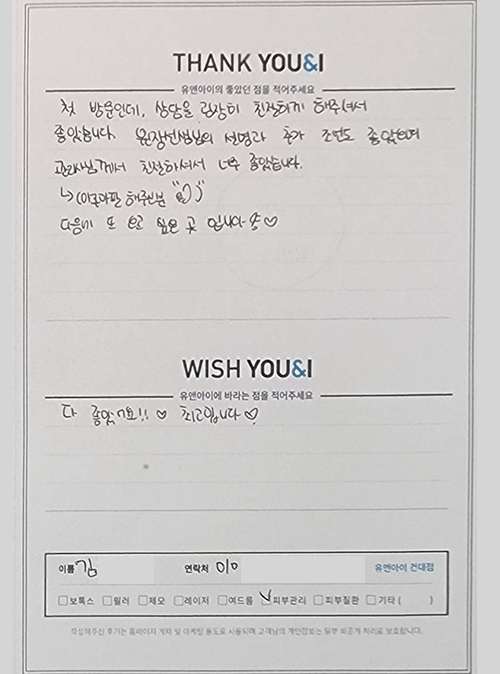 THANK YOU&I
유앤아이의 좋았던 점을 적어주세요
첫 방문인데, 상담을 굉장히 친절하게 해주셔서
좋았습니다. 원장선생님의 설명과 추가 조언도 좋았으며
관리사님께서 친절하셔서 너무 좋았습니다.
↳ (아쿠아필 해주신분
다음에 또 오고 싶은 곳 입니다 ♡
WISH YOU&I
유앤아이에 바라는 점을 적어주세요
다 좋았어요!! ♡ 최고입니다♡
이름 김 연락처 010 유앤아이 건대점
□보톡스 □필러 □제모 □레이저 □여드름 ☑피부관리 □피부질환 □기타 ( )
작성해주신 후기는 홈페이지 게재 및 마케팅 용도로 사용되며 고객님의 개인정보는 일부 비공개 처리로 보호됩니다.